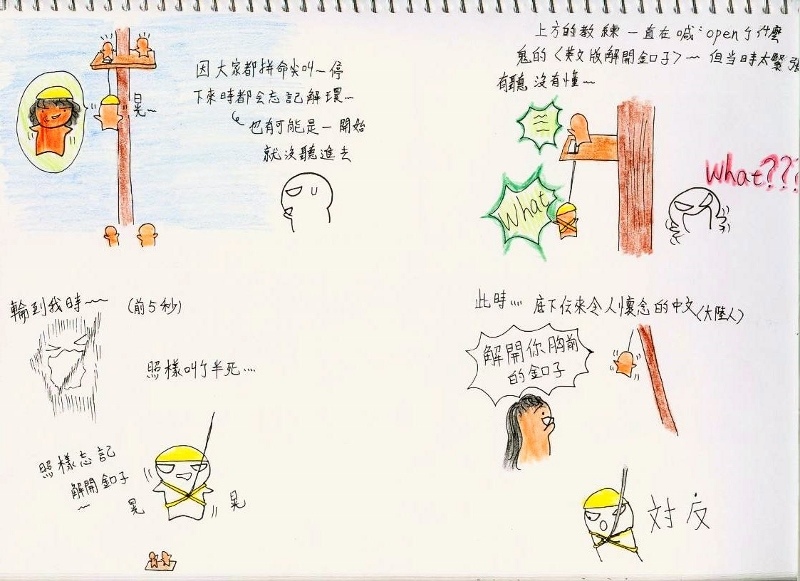 因大家都拼命尖叫一停
下來時都会忘記解環~
也有可能是一開始
就沒聽進去
晃~
上方的教練一直在喊:open个什麼
鬼的〈英文版解開釦子〉~但当時太緊張
有聽沒有懂~
What
What???
輪到我時~~ (前5秒)
照樣叫个半死....
照樣忘記
解開釦子~
晃
晃
此時.... 底下伝来令人懷念的中文(大陸人)
解開你胸前
的釦子
対反